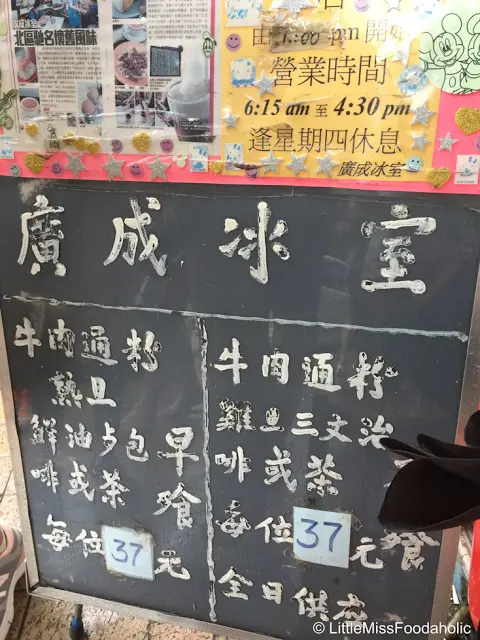 北區馳名懷舊風味
營業時間
6:15 am 至 4:30 pm
逢星期四休息
廣成冰室
廣成冰室
牛肉通粉
熱旦
鮮油占包
啡或茶
早餐
每位37元
牛肉通粉
雞旦三文治
啡或茶
餐
每位37元
全日供应
© LittleMissFoodaholic